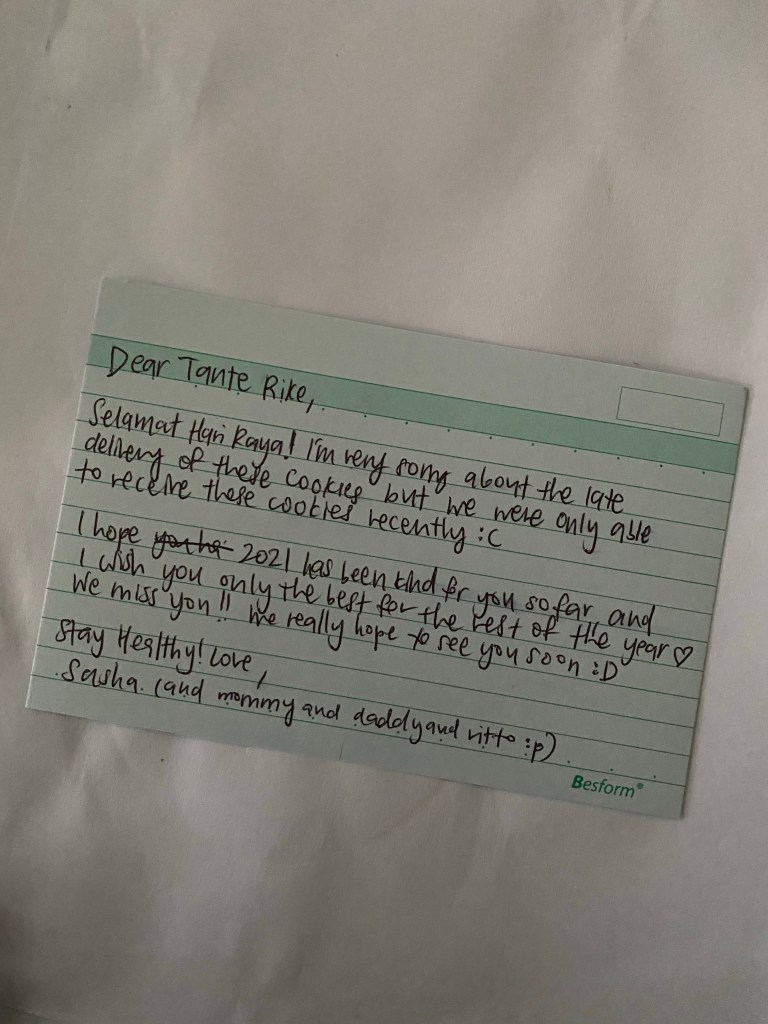 Dear Tante Rike,
Selamat Hari Raya! I'm very sorry about the late
delivery of these cookies but we were only able
to receive these cookies recently :C
I hope 2021 has been kind for you so far and
I wish you only the best for the rest of the year ♡
We miss you!! We really hope to see you soon :D
Stay Healthy! Love,
Sasha. (and mommy and daddy and vitto :p)
Besform®